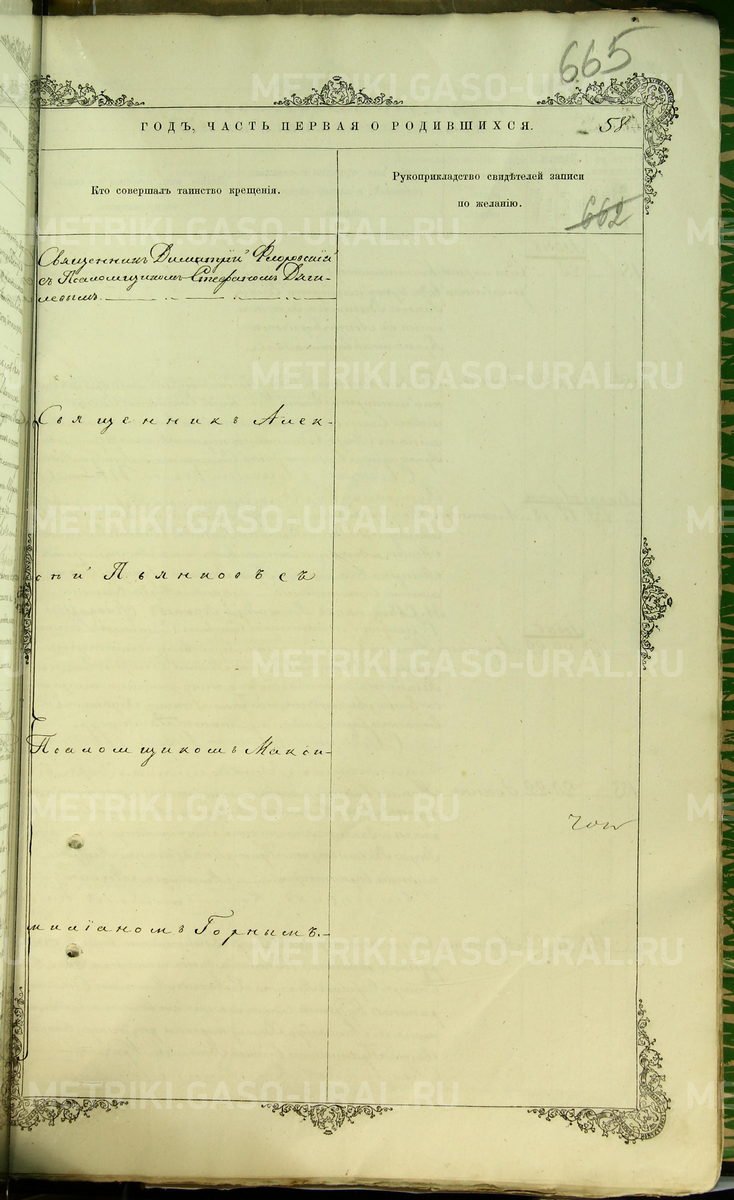 665
ГОДЪ, ЧАСТЬ ПЕРВАЯ О РОДИВШИХСЯ.
58
Кто совершалъ таинство крещенія.
Рукоприкладство свидѣтелей записи
по желанію.
662
Священникъ Димитрій Флоровскій
съ Псаломщикомъ Стефаномъ Дяги-
левымъ.
Священникъ Алек-
сѣй Пьянковъ съ
Псаломщикомъ Макси-
миліаномъ Горнымъ.
METRIKI.GASO-URAL.RU